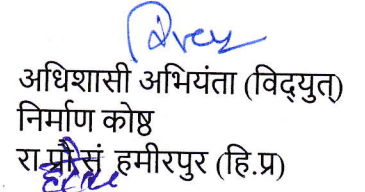 अधिशासी अभियंता (विद्युत्)
निर्माण कोष्ठ
रा.प्रौ.सं हमीरपुर (हि.प्र)